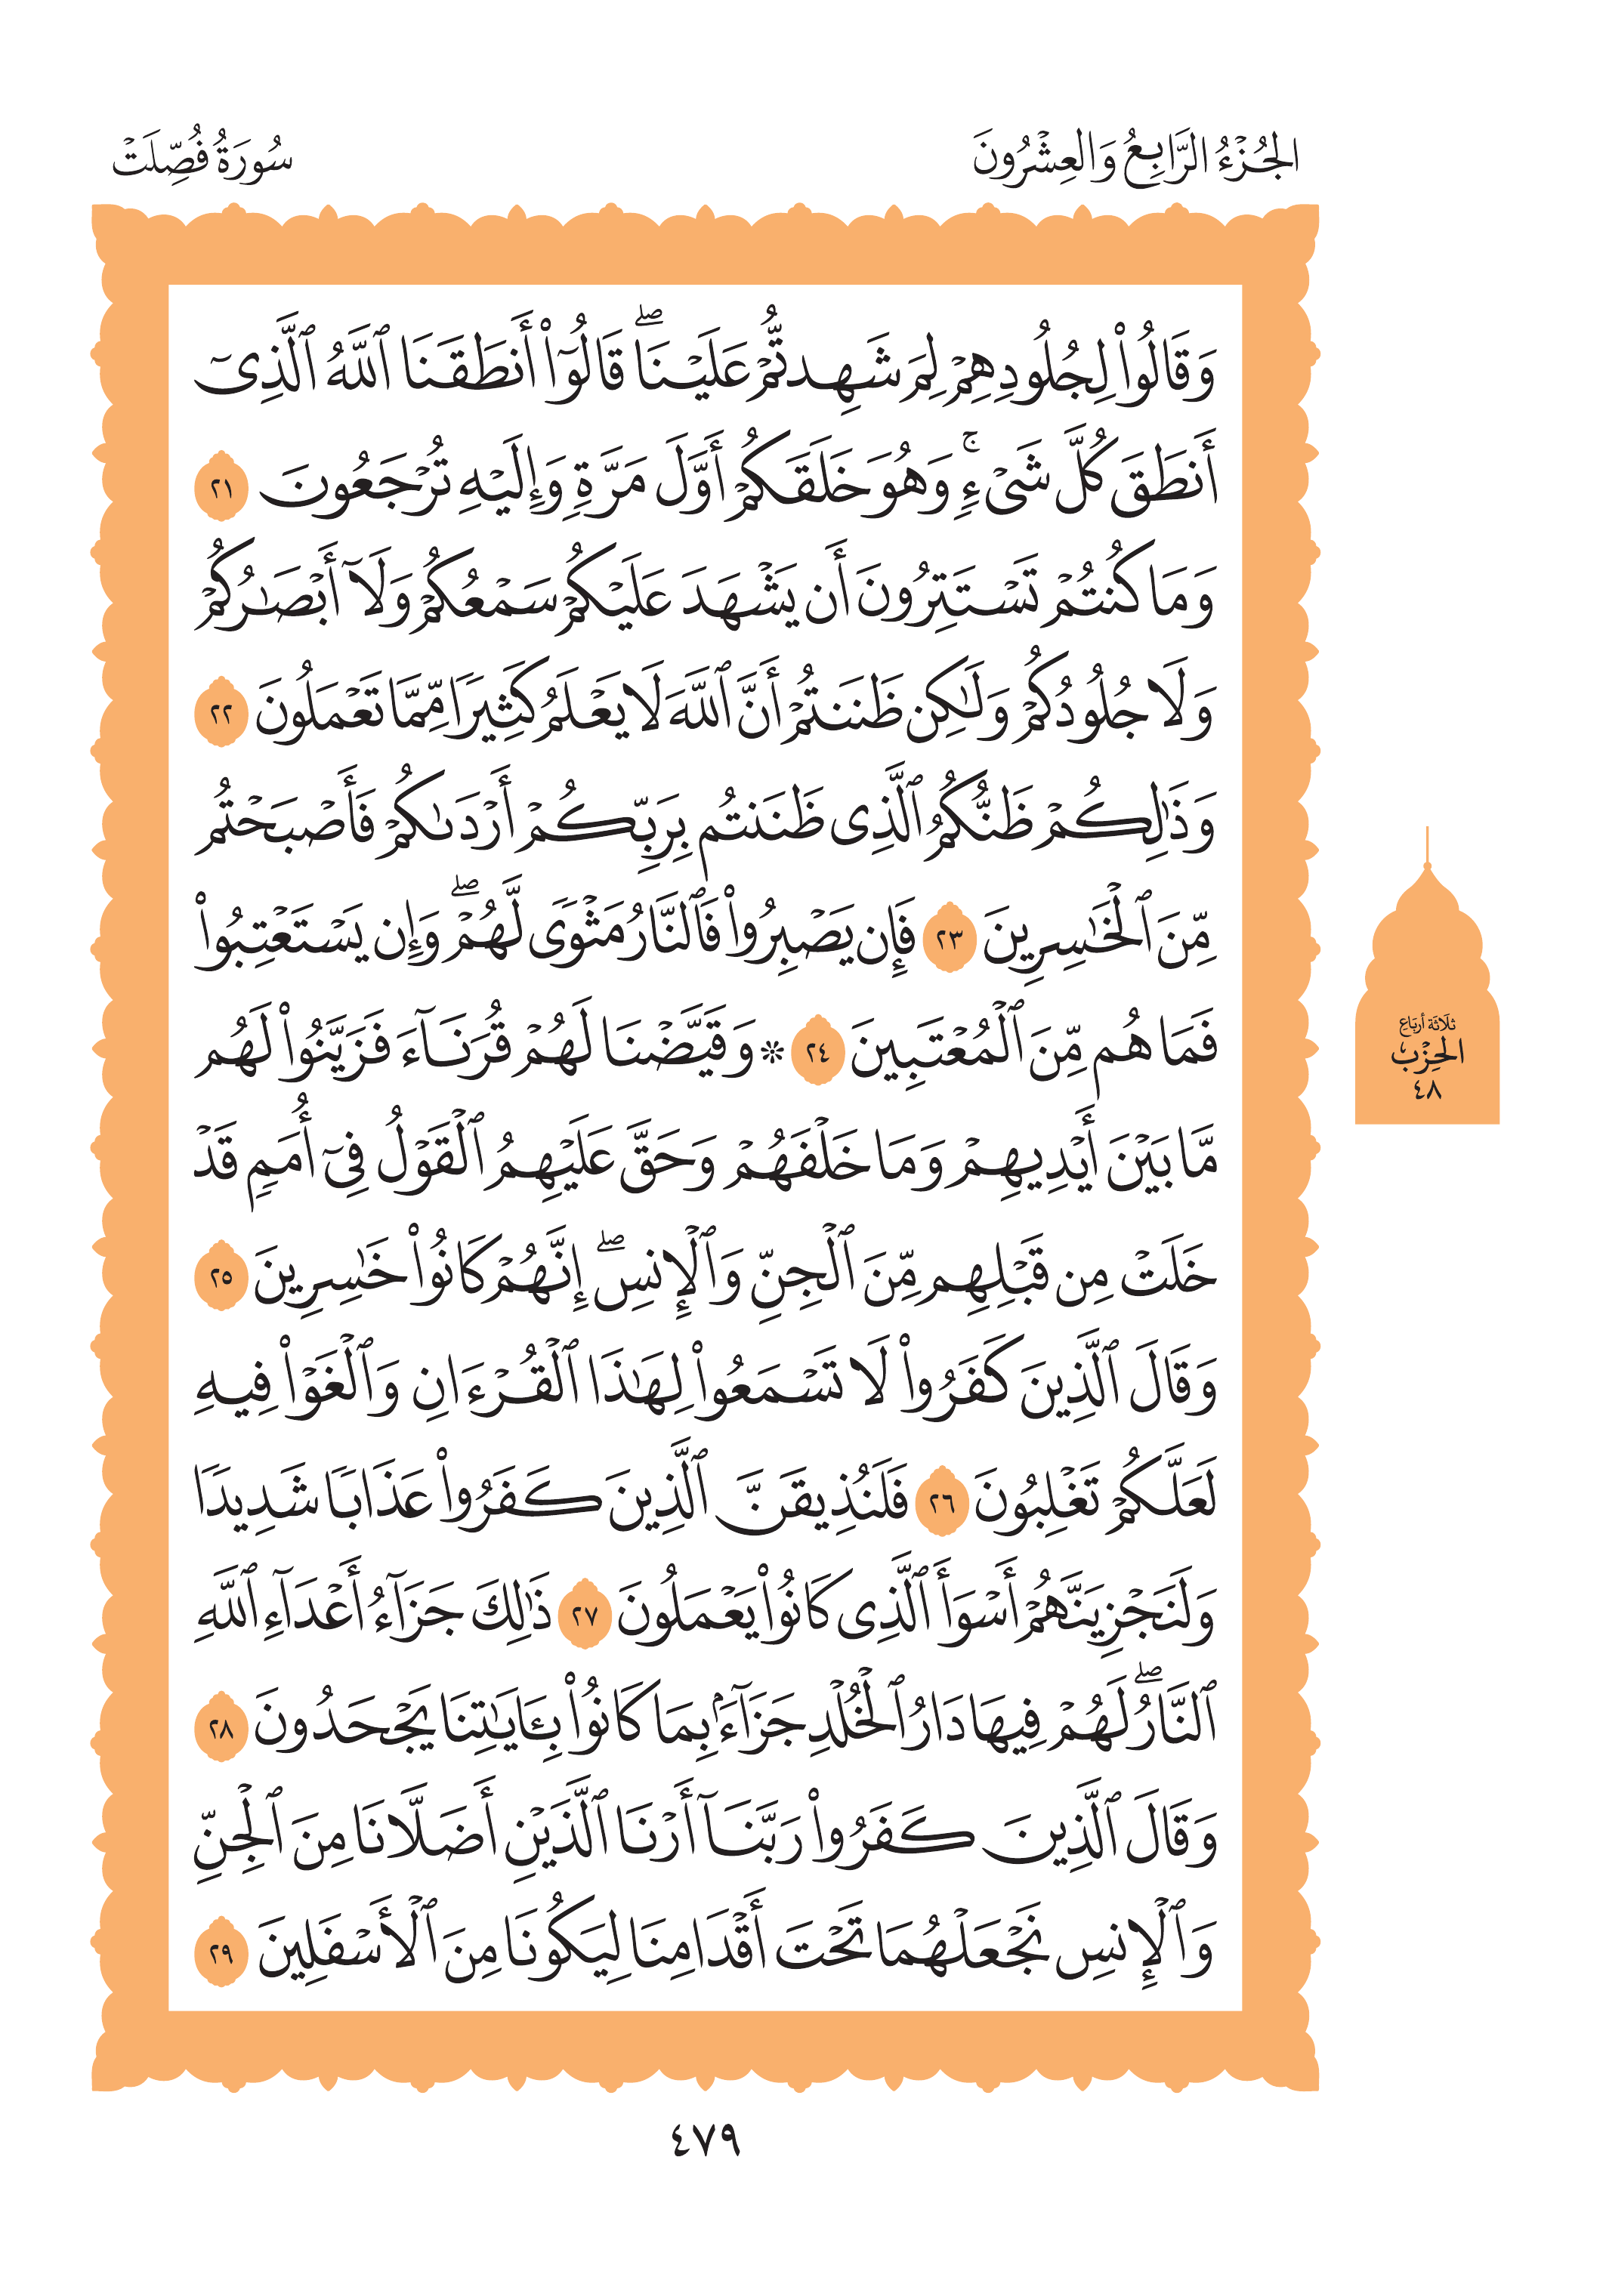 الجُزْءُ الرَّابِعُ وَالعِشْرُونَ
سُورَةُ فُصِّلَتْ
وَقَالُوا۟ لِجُلُودِهِمْ لِمَ شَهِدتُّمْ عَلَيْنَا ۖ قَالُوٓا۟ أَنطَقَنَا ٱللَّهُ ٱلَّذِىٓ
أَنطَقَ كُلَّ شَىْءٍ ۚ وَهُوَ خَلَقَكُمْ أَوَّلَ مَرَّةٍ وَإِلَيْهِ تُرْجَعُونَ ٢١
وَمَا كُنتُمْ تَسْتَتِرُونَ أَن يَشْهَدَ عَلَيْكُمْ سَمْعُكُمْ وَلَآ أَبْصَـٰرُكُمْ
وَلَا جُلُودُكُمْ وَلَـٰكِن ظَنَنتُمْ أَنَّ ٱللَّهَ لَا يَعْلَمُ كَثِيرًا مِّمَّا تَعْمَلُونَ ٢٢
وَذَٰلِكُمْ ظَنُّكُمُ ٱلَّذِى ظَنَنتُم بِرَبِّكُمْ أَرْدَىٰكُمْ فَأَصْبَحْتُم
مِّنَ ٱلْخَـٰسِرِينَ ٢٣ فَإِن يَصْبِرُوا۟ فَٱلنَّارُ مَثْوًى لَّهُمْ ۖ وَإِن يَسْتَعْتِبُوا۟
فَمَا هُم مِّنَ ٱلْمُعْتَبِينَ ٢٤ ۞ وَقَيَّضْنَا لَهُمْ قُرَنَآءَ فَزَيَّنُوا۟ لَهُم
مَّا بَيْنَ أَيْدِيهِمْ وَمَا خَلْفَهُمْ وَحَقَّ عَلَيْهِمُ ٱلْقَوْلُ فِىٓ أُمَمٍ قَدْ
خَلَتْ مِن قَبْلِهِم مِّنَ ٱلْجِنِّ وَٱلْإِنسِ ۖ إِنَّهُمْ كَانُوا۟ خَـٰسِرِينَ ٢٥
وَقَالَ ٱلَّذِينَ كَفَرُوا۟ لَا تَسْمَعُوا۟ لِهَـٰذَا ٱلْقُرْءَانِ وَٱلْغَوْا۟ فِيهِ
لَعَلَّكُمْ تَغْلِبُونَ ٢٦ فَلَنُذِيقَنَّ ٱلَّذِينَ كَفَرُوا۟ عَذَابًا شَدِيدًا
وَلَنَجْزِيَنَّهُمْ أَسْوَأَ ٱلَّذِى كَانُوا۟ يَعْمَلُونَ ٢٧ ذَٰلِكَ جَزَآءُ أَعْدَآءِ ٱللَّهِ
ٱلنَّارُ ۖ لَهُمْ فِيهَا دَارُ ٱلْخُلْدِ جَزَآءًۢ بِمَا كَانُوا۟ بِـَٔايَـٰتِنَا يَجْحَدُونَ ٢٨
وَقَالَ ٱلَّذِينَ كَفَرُوا۟ رَبَّنَآ أَرِنَا ٱلَّذَيْنِ أَضَلَّانَا مِنَ ٱلْجِنِّ
وَٱلْإِنسِ نَجْعَلْهُمَا تَحْتَ أَقْدَامِنَا لِيَكُونَا مِنَ ٱلْأَسْفَلِينَ ٢٩
ثلاثة أرباع
الحِزْب
٤٨
٤٧٩